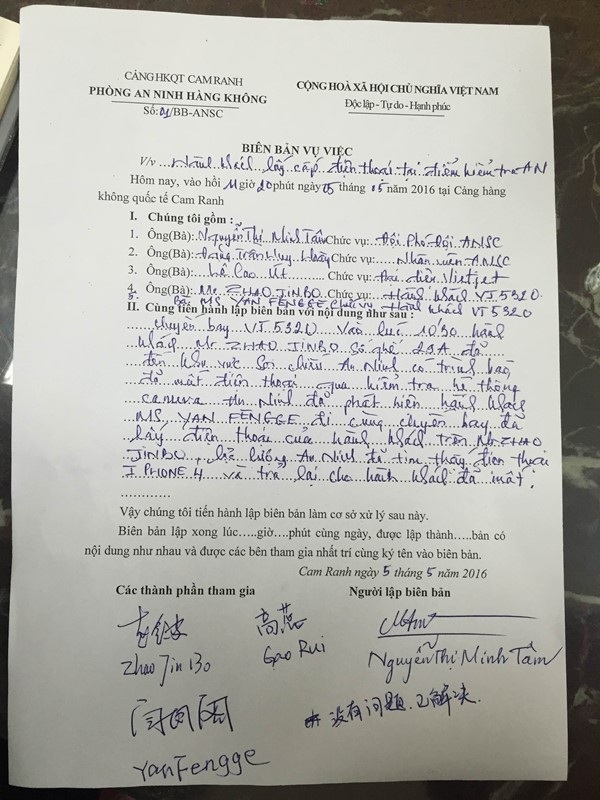 CẢNG HKQT CAM RANH
PHÒNG AN NINH HÀNG KHÔNG
Số: 01/BB-ANSC
CỘNG HOÀ XÃ HỘI CHỦ NGHĨA VIỆT NAM
Độc lập - Tự do - Hạnh phúc
BIÊN BẢN VỤ VIỆC
V/v Hành khách lấy cắp điện thoại tại điểm kiểm tra AN
Hôm nay, vào hồi 11 giờ 20 phút ngày 05 tháng 05 năm 2016 tại Cảng hàng
không quốc tế Cam Ranh
I. Chúng tôi gồm :
1. Ông(Bà): Nguyễn Thị Minh Tâm Chức vụ: Đội Phó Đội ANSC
2. Ông(Bà): Trần Huy Chức vụ: Nhân viên ANSC
3. Ông(Bà): Hồ Cao Út Chức vụ: Đại diện Vietjet
4. Ông(Bà): Mr. ZHAO JINBO Chức vụ: Hành khách VJ 5320
5. Bà: MS YAN FENGGE Chức vụ Hành khách VJ 5320
II. Cùng tiến hành lập biên bản với nội dung như sau :
chuyến bay VJ 5320 vào lúc 10h30 hành
khách Mr. ZHAO JINBO Số ghế 23A đã
đến khu vực Soi chiếu An Ninh có trình báo
đã mất điện thoại qua kiểm tra hệ thống
camera An Ninh đã phát hiện hành khách
MS, YAN FENGGE đi cùng chuyến bay đã
lấy điện thoại của hành khách trên Mr. ZHAO
JINBO, lực lượng An Ninh đã tìm thấy điện thoại
I PHONE 4 và trả lại cho hành khách đã mất.
Vậy chúng tôi tiến hành lập biên bản làm cơ sở xử lý sau này.
Biên bản lập xong lúc.....giờ....phút cùng ngày, được lập thành.....bản có
nội dung như nhau và được các bên tham gia nhất trí cùng ký tên vào biên bản.
Cam Ranh ngày 5 tháng 5 năm 2016
Các thành phần tham gia
Người lập biên bản
高蕊
Zhao Jin Bo
Gao Rui
Nguyễn Thị Minh Tâm
没有问题.已解决.
YanFengge